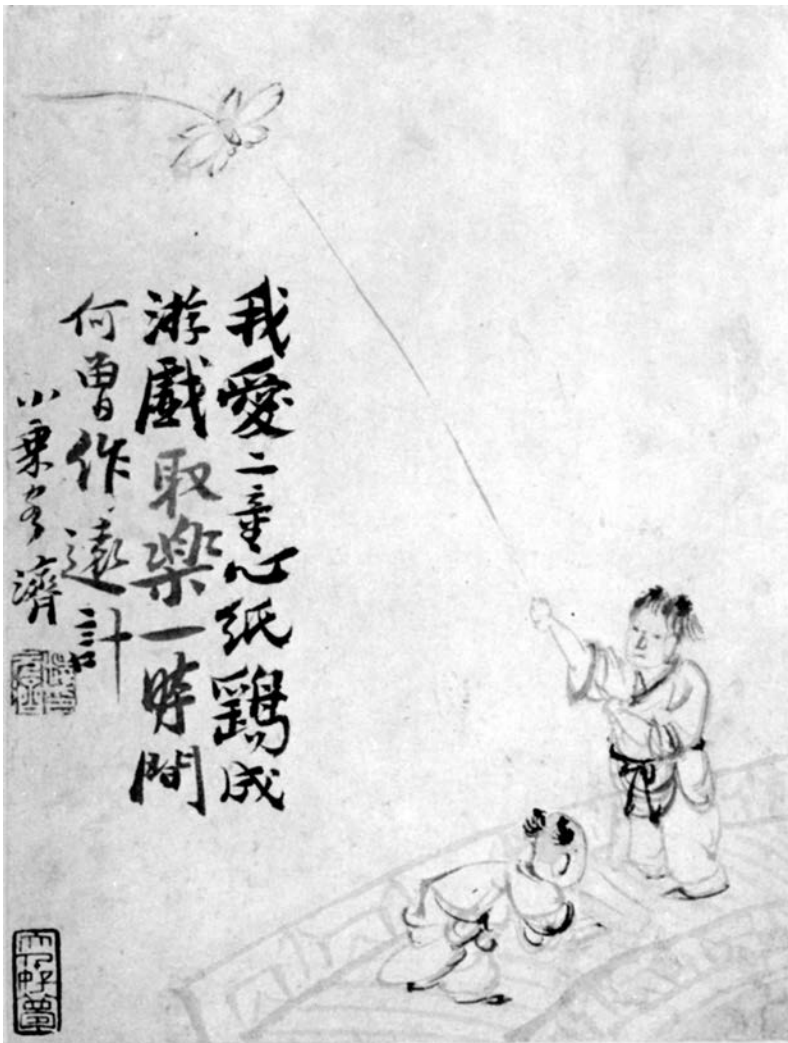 我愛二童心紙鷂成
游戲取樂一時間
何曽作遠計
小乗客濟